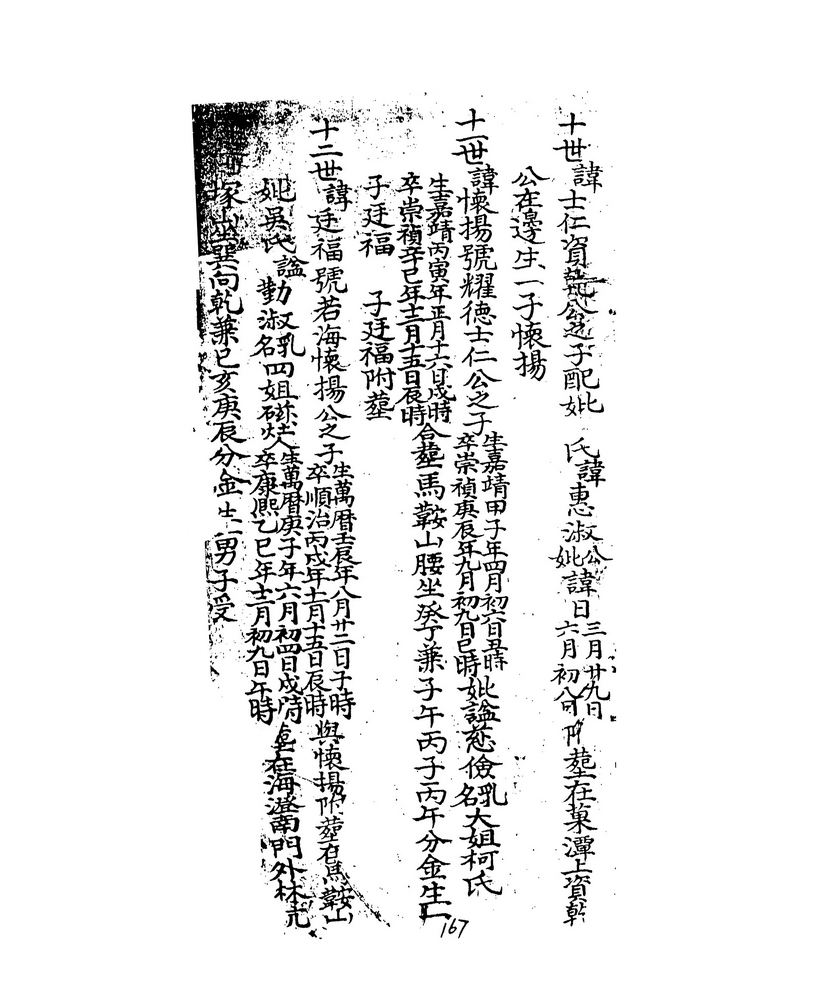 十世諱士仁資乾公之子配妣氏諱惠淑公妣諱日三月廿九日六月初八日附塟在菓潭上資乾
公在邊生一子懷揚
十一世諱懷揚號耀德士仁公之子生嘉靖甲子年四月初六日丑時卒崇禎庚辰年九月初九日巳時妣謚慈儉乳名大姐柯氏
生嘉靖丙寅年正月十六日戌時卒崇禎辛巳年十二月十五日辰時合塟馬鞍山腰坐癸丁兼子午丙子丙午分金生
子廷福 子廷福附塟
十二世諱廷福號若海懷揚公之子生萬曆壬辰年八月廿二日子時卒順治丙戌年十一月十五日辰時與懷揚附塟在馬鞍山
妣吳氏謚勤淑乳名四姐生萬曆庚子年六月初四日戌時卒康熙乙巳年十二月初九日午時在海澄南門外林
塚坐巽向乾兼巳亥庚辰分金生一男子受
167